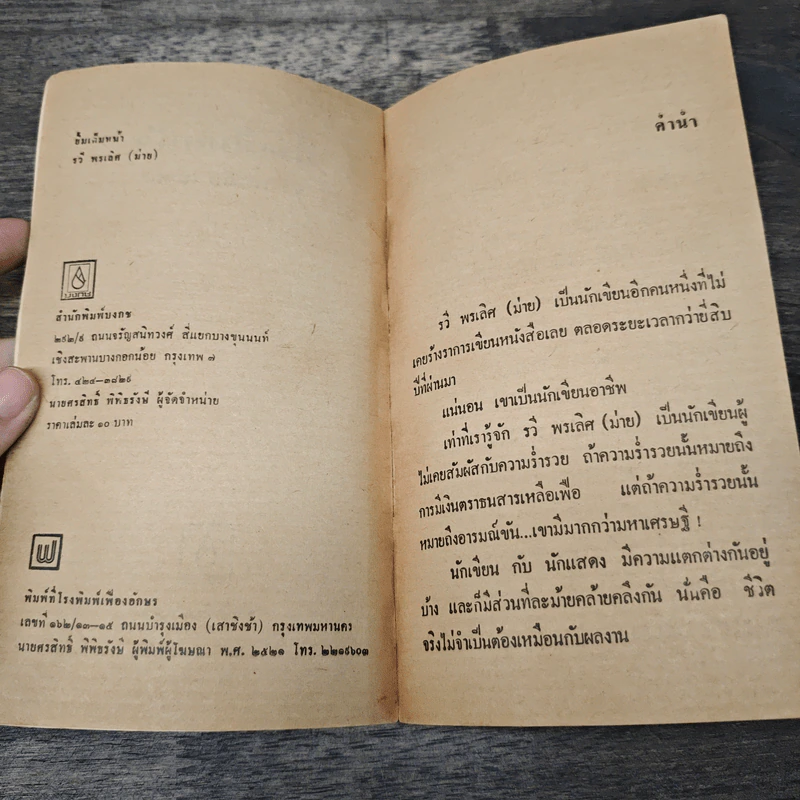 ยิ้มเต็มหน้า
รวี พรเลิศ (ม่าย)
บงกช
สำนักพิมพ์บงกช
๒๙๒/๘ ถนนจรัญสนิทวงศ์ สี่แยกบางขุนนนท์
เชิงสะพานบางกอกน้อย กรุงเทพ ๗
โทร. ๔๒๔—๓๘๒๙
นายศรสิทธิ์ พิพิธรังษี ผู้จัดจำหน่าย
ราคาเล่มละ ๑๐ บาท
พิมพ์ที่โรงพิมพ์เฟื่องอักษร
เลขที่ ๑๖๒/๑๓—๑๕ ถนนบำรุงเมือง (เสาชิงช้า) กรุงเทพมหานคร
นายศรสิทธิ์ พิพิธรังษี ผู้พิมพ์ผู้โฆษณา พ.ศ. ๒๕๒๑ โทร. ๒๒๑๙๖๐๓
คำนำ
รวี พรเลิศ (ม่าย) เป็นนักเขียนอีกคนหนึ่งที่ไม่
เคยร้างราการเขียนหนังสือเลย ตลอดระยะเวลากว่ายี่สิบ
ปีที่ผ่านมา
แน่นอน เขาเป็นนักเขียนอาชีพ
เท่าที่เรารู้จัก รวี พรเลิศ (ม่าย) เป็นนักเขียนผู้
ไม่เคยสัมผัสกับความร่ำรวย ถ้าความร่ำรวยนั้นหมายถึง
การมีเงินตราธนสารเหลือเฟือ แต่ถ้าความร่ำรวยนั้น
หมายถึงอารมณ์ขัน...เขามีมากกว่ามหาเศรษฐี !
นักเขียน กับ นักแสดง มีความแตกต่างกันอยู่
บ้าง และก็มีส่วนที่ละม้ายคล้ายคลึงกัน นั่นคือ ชีวิต
จริงไม่จำเป็นต้องเหมือนกับผลงาน